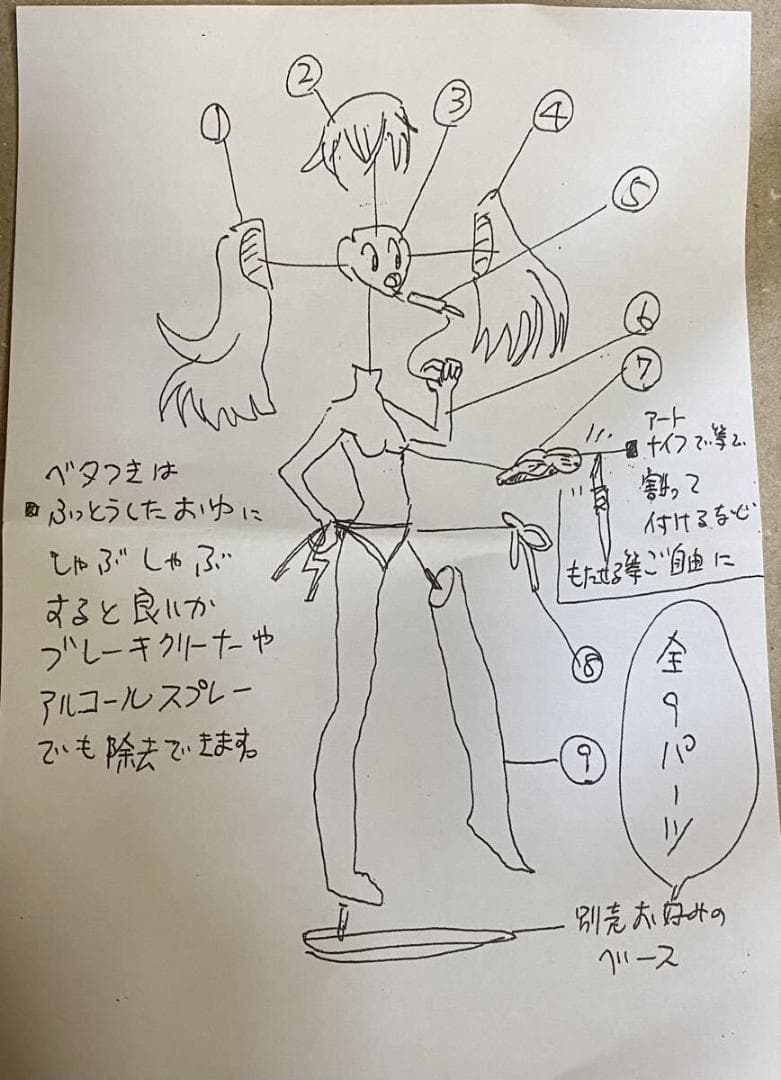 ①
②
③
④
⑤
⑥
⑦
アート
ナイフで拳で
割って
付けるなど
もたせる拳ご自由に
ベタつきは
ふっとうしたおゆに
しゃぶしゃぶ
すると良いか
ブレーキクリーナーや
アルコールスプレー
でも除去できます。
⑧
⑨
全9パーツ
別売お好みの
ベース